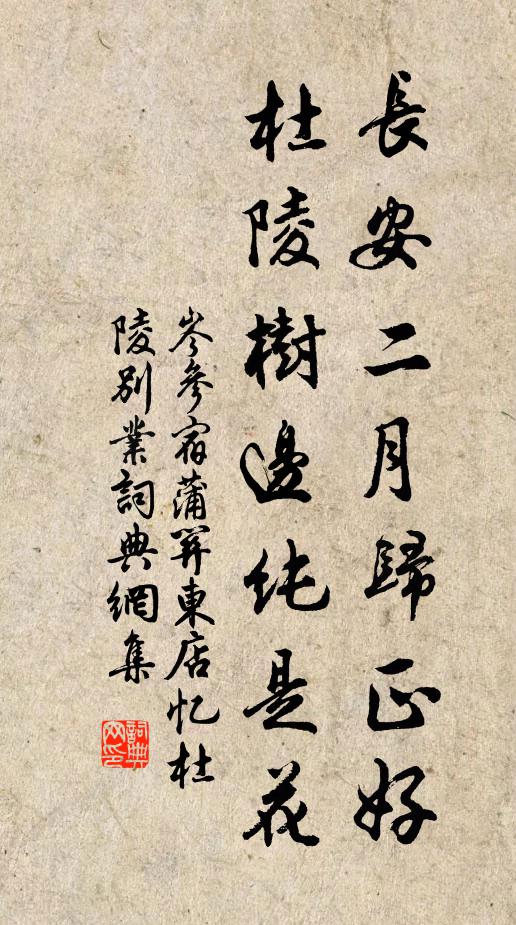 長安二月歸正好
杜陵樹邊純是花
岑參宿蒲關東店忆杜
陵別業詞典網集
詞典
网印